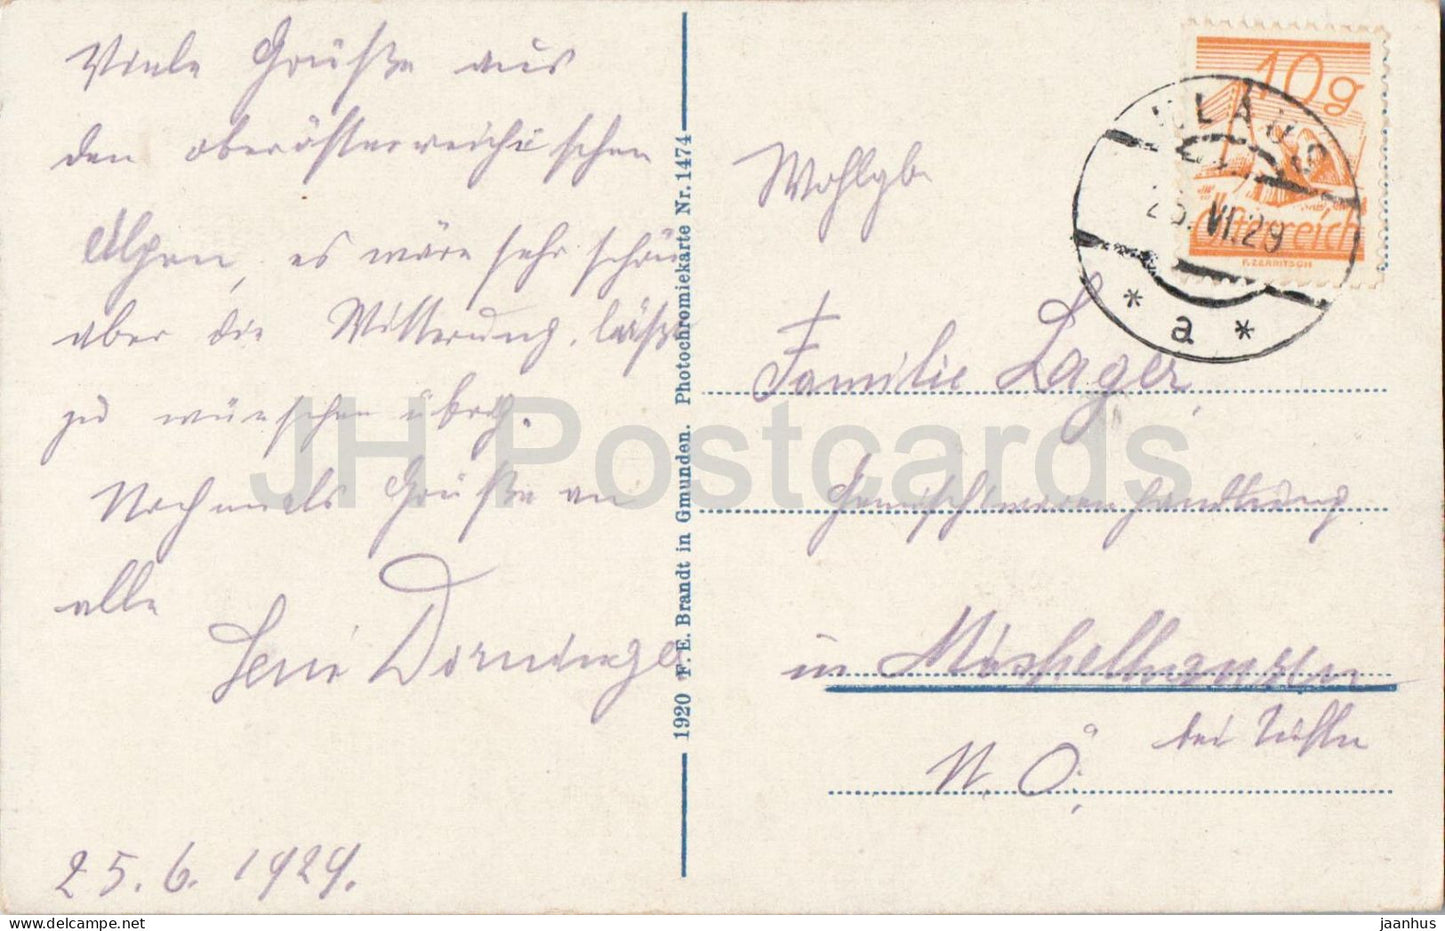 Viele Grüße aus
den oberösterreichischen
Alpen, es wäre sehr schön
aber die Witterung läßt
zu wünschen übrig.
Nochmals Grüße an
alle
25.6.1929.
1920 F. E. Brandt in Gmunden. Photochromiekarte Nr. 1474
10g
Österreich
KLAUS
25.VI.29
* a *
Wohlgb
Familie Lager,
Gemischtwarenhandlung
in
bei
N. Ö.
JH Postcards
www.delcampe.net
jaanhus